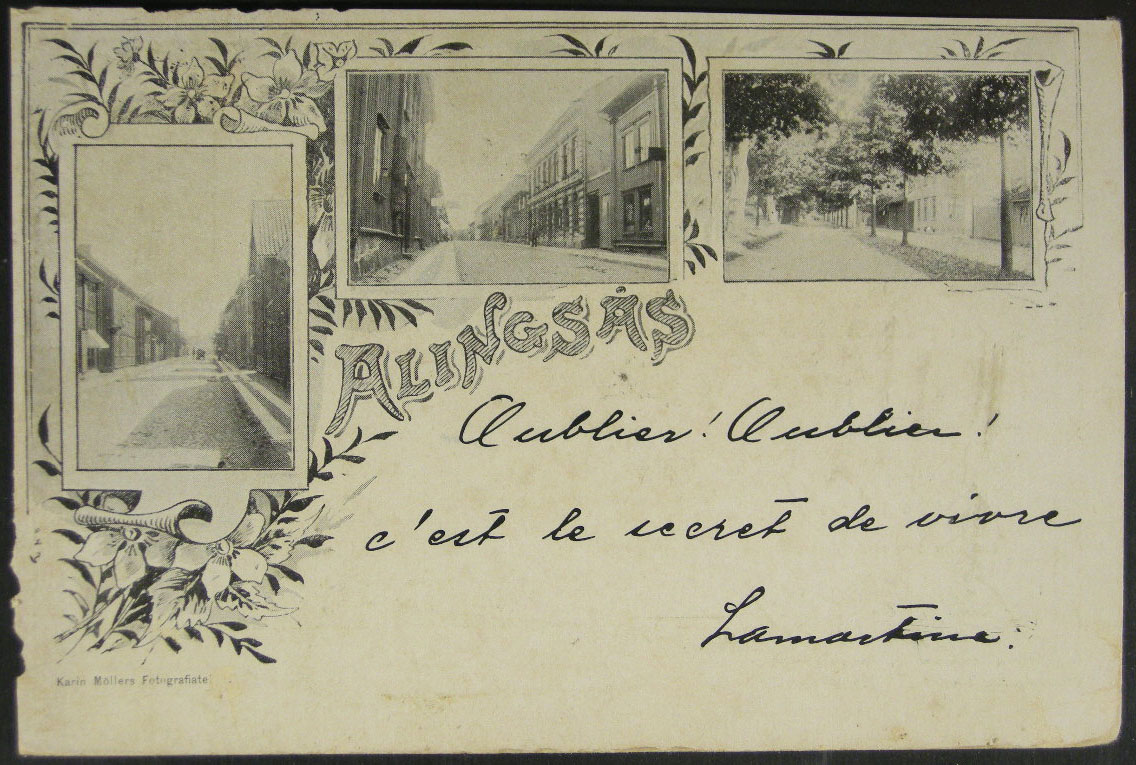 ALINGSÅS
Oublier! Oublier!
c'est le secret de vivre
Lamartine.
Karin Möllers Fotografiate